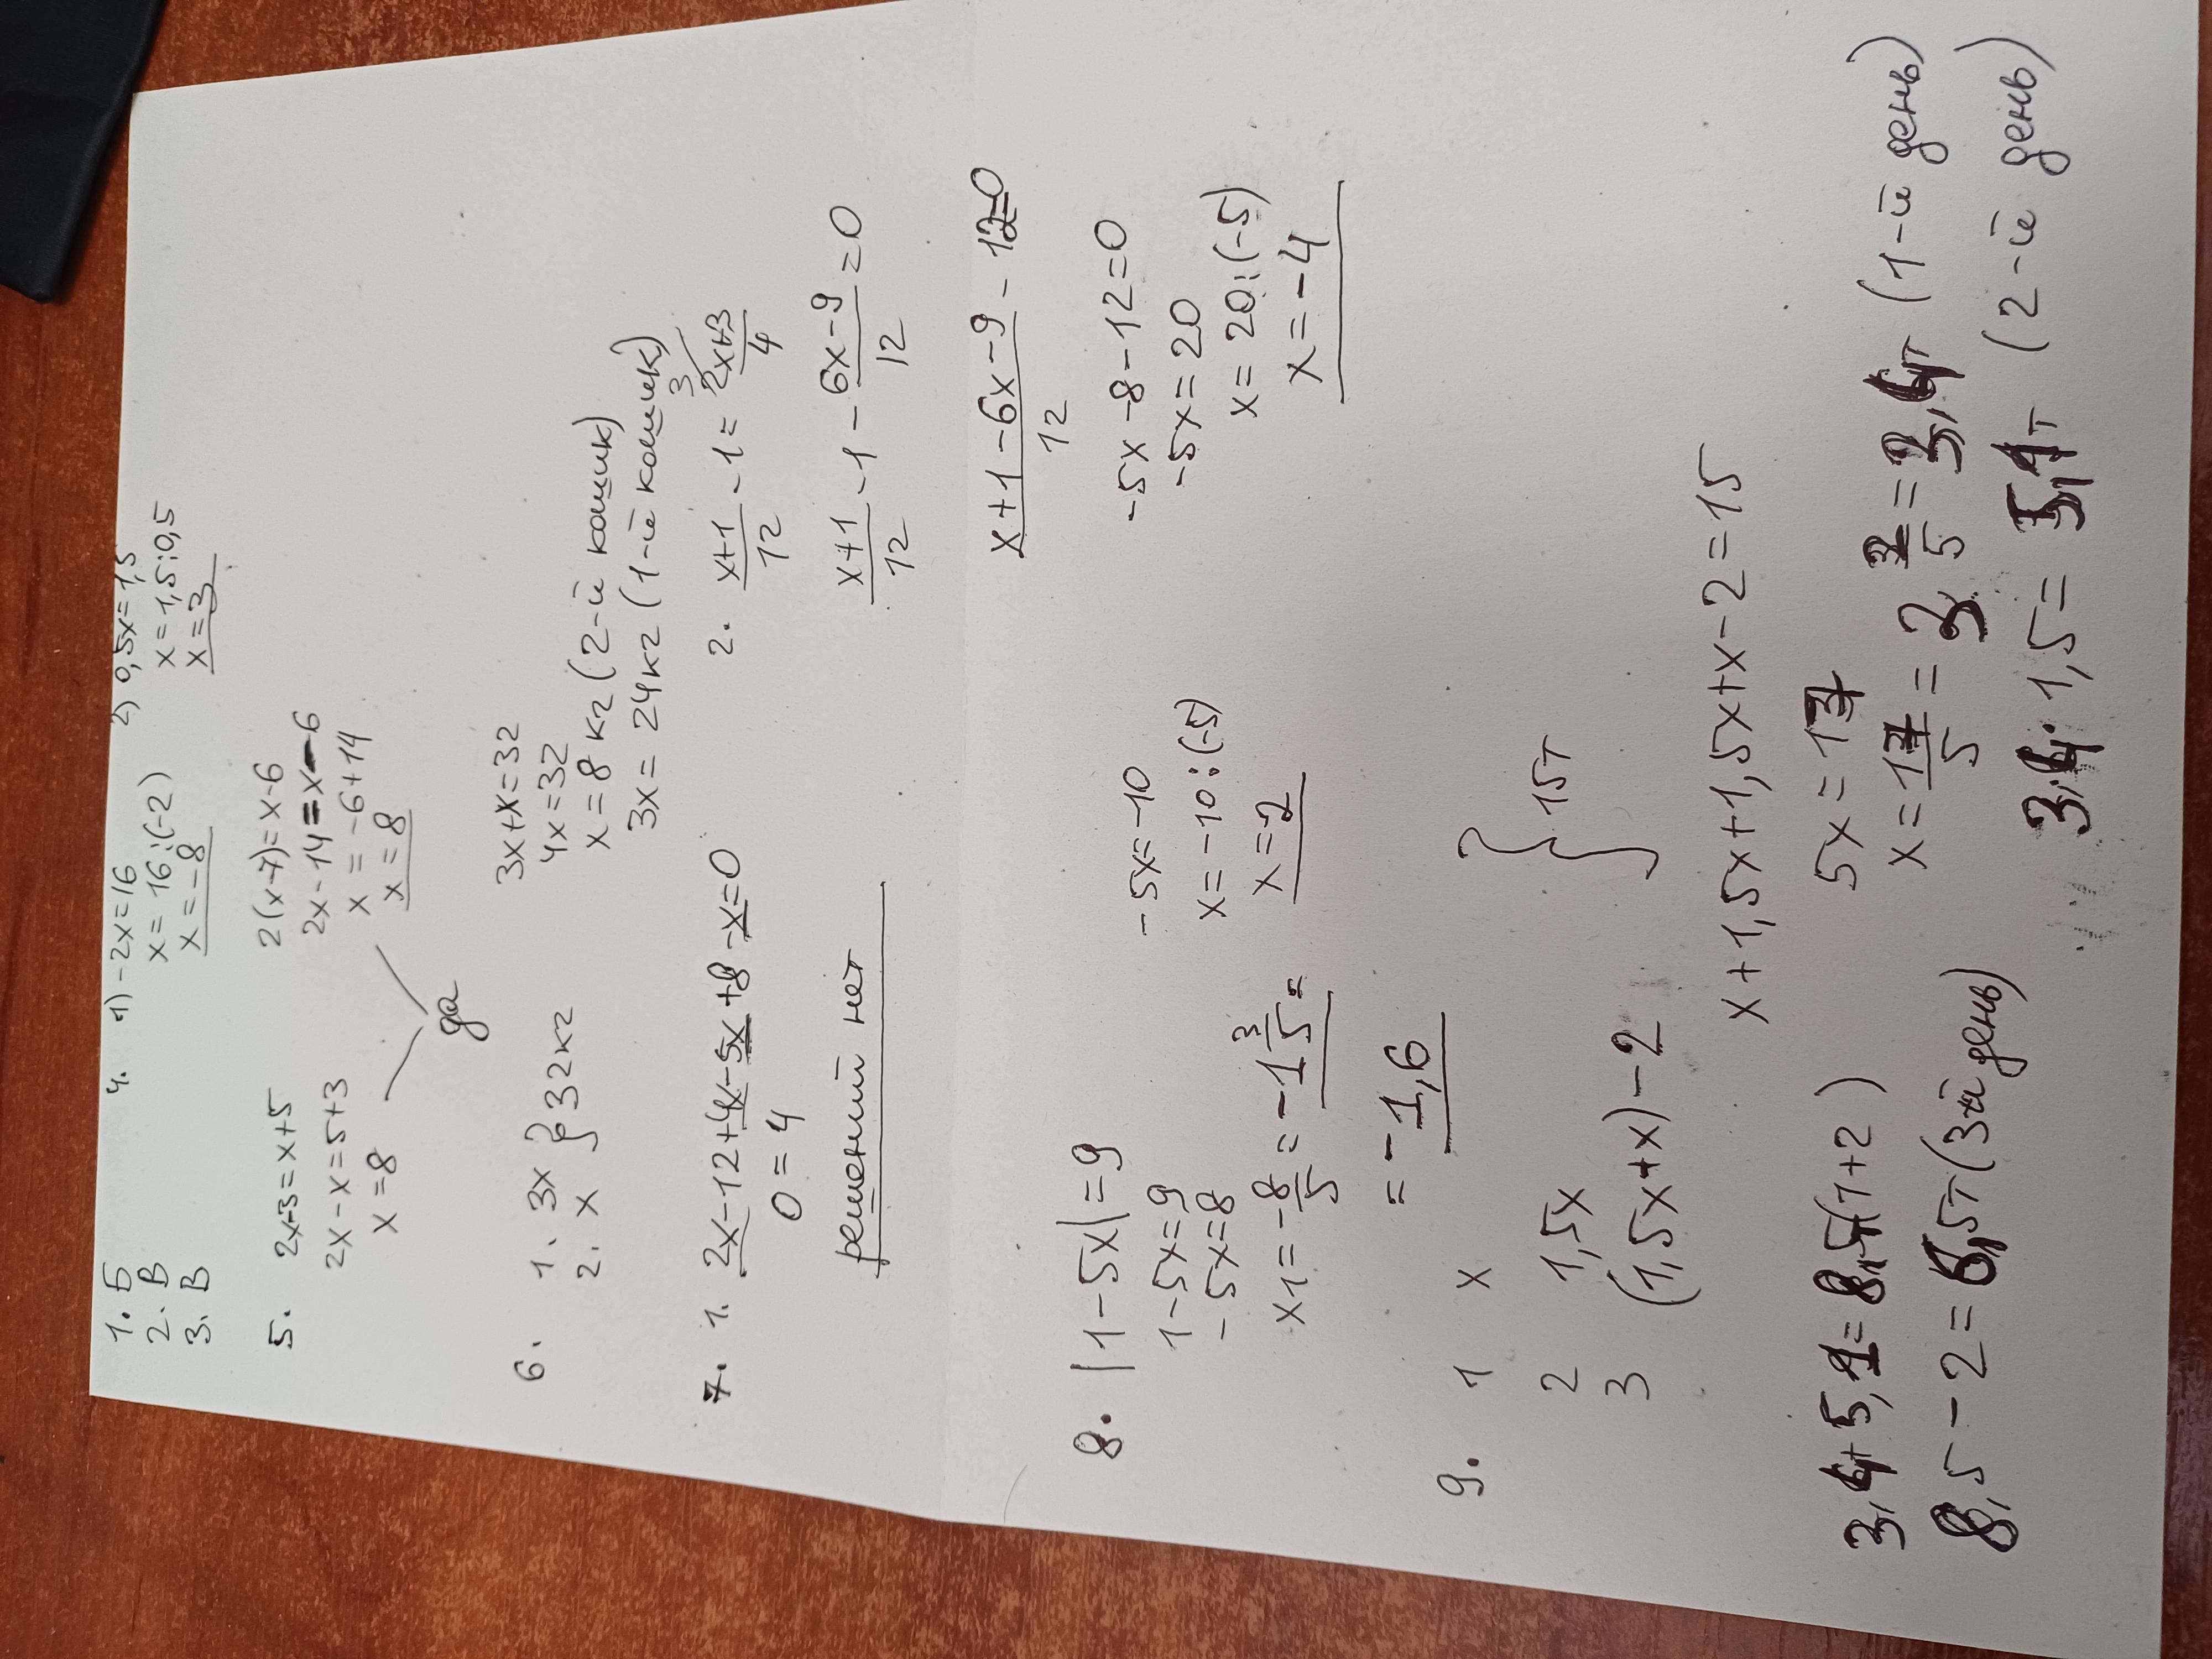 1. Б
2. В
3. В
4. 1) -2x=16
x = 16:(-2)
x = -8
2) 0,5x=1,5
x = 1,5:0,5
x = 3
5. 2x-3=x+5
2x-x=5+3
x=8
2(x-7)=x-6
2x-14=x-6
x = -6+14
x = 8
да
6. 1. 3x } 32кг
2. x
3x+x=32
4x=32
x=8 кг (2-й кошик)
3x=24кг (1-й кошик)
7. 1. 2x-12+4x-5x+8-x=0
0=4
решений нет
2. x+1/12 -1= 2x+3/4 3
x+1/12 -1- 6x-9/12 =0
x+1-6x-9-12=0
12
-5x-8-12=0
-5x=20
x=20:(-5)
x=-4
8. |1-5x|=9
1-5x=9
-5x=8
x1=-8/5=-1 3/5=
=-1,6
-5x=-10
x=-10:(-5)
x=2
9. 1 x
2 1,5x
3 (1,5x+x)-2
} 15т
x+1,5x+1,5x+x-2=15
5x=17
x=17/5=3 2/5=3,4т (1-й день)
3,4·1,5=5,1т (2-й день)
3,4+5,1=8,5т(1+2)
8,5-2=6,5т(3й день)